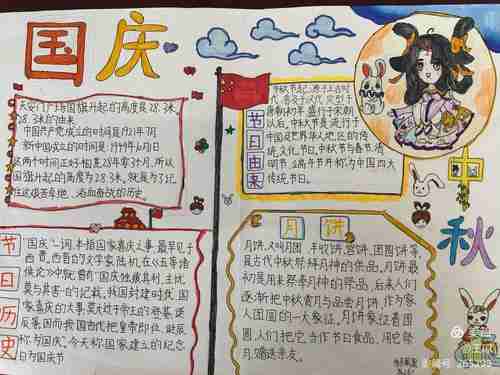 国庆
天安门广场国旗升起的高度是28.3米。
28.3米的由来
中国共产党成立的时间是1921年7月
新中国成立的时间是:1949年10月1日
这两个时间正好相差28年零3个月,所以
国旗升起的高度为28.3米,就是为了记
住这艰苦卓绝、浴血奋战的历史。
节日历史
"国庆"一词,本指国家喜庆之事,最早见于
西晋。西晋的文学家陆机在《五等诸
侯论》中就曾有"国庆独飨其利,主忧
莫与其害"的记载,我国封建时代,国
家喜庆的大事,莫大过于帝王的登基、诞
辰等。因而我国古代把皇帝即位、诞辰
称为"国庆"。今天称国家建立的纪念
日为国庆节
节日由来
中秋节起源于上古时
代,普及于汉代,定型于
唐朝初年,盛行于宋朝
以后。中秋节是流行于
中国民间
传统文化节日。中秋节与春节、清
明节、端午节并称为中国四大
传统节日。
中秋
月饼
月饼,又叫月团、丰收饼、宫饼、团圆饼等,
是古代中秋祭拜月神的供品。月饼最
初是用来祭奉月神的祭品,后来人们
逐渐把中秋赏月与品尝月饼,作为家
人团圆的一大象征。月饼象征着团
圆,人们把它当作节日食品,用它祭
月、赠送亲友。